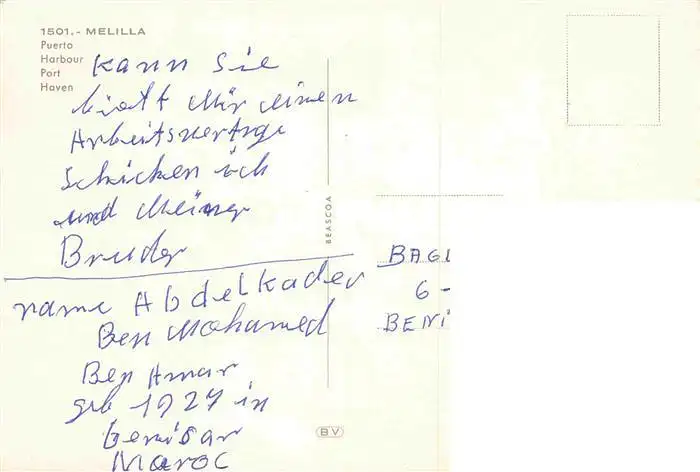 1501.- MELILLA
Puerto
Harbour
Port
Haven
Kann Sie
bitt Mir einen
Arbeitsvertrge
Schicken ich
und Meiner
Bruder
name Abdelkader
Ben Mohamed
Ben Amar
geb 1927 in
benisar
Maroc
BEASCOA
BV
BAGL
6-
BENI